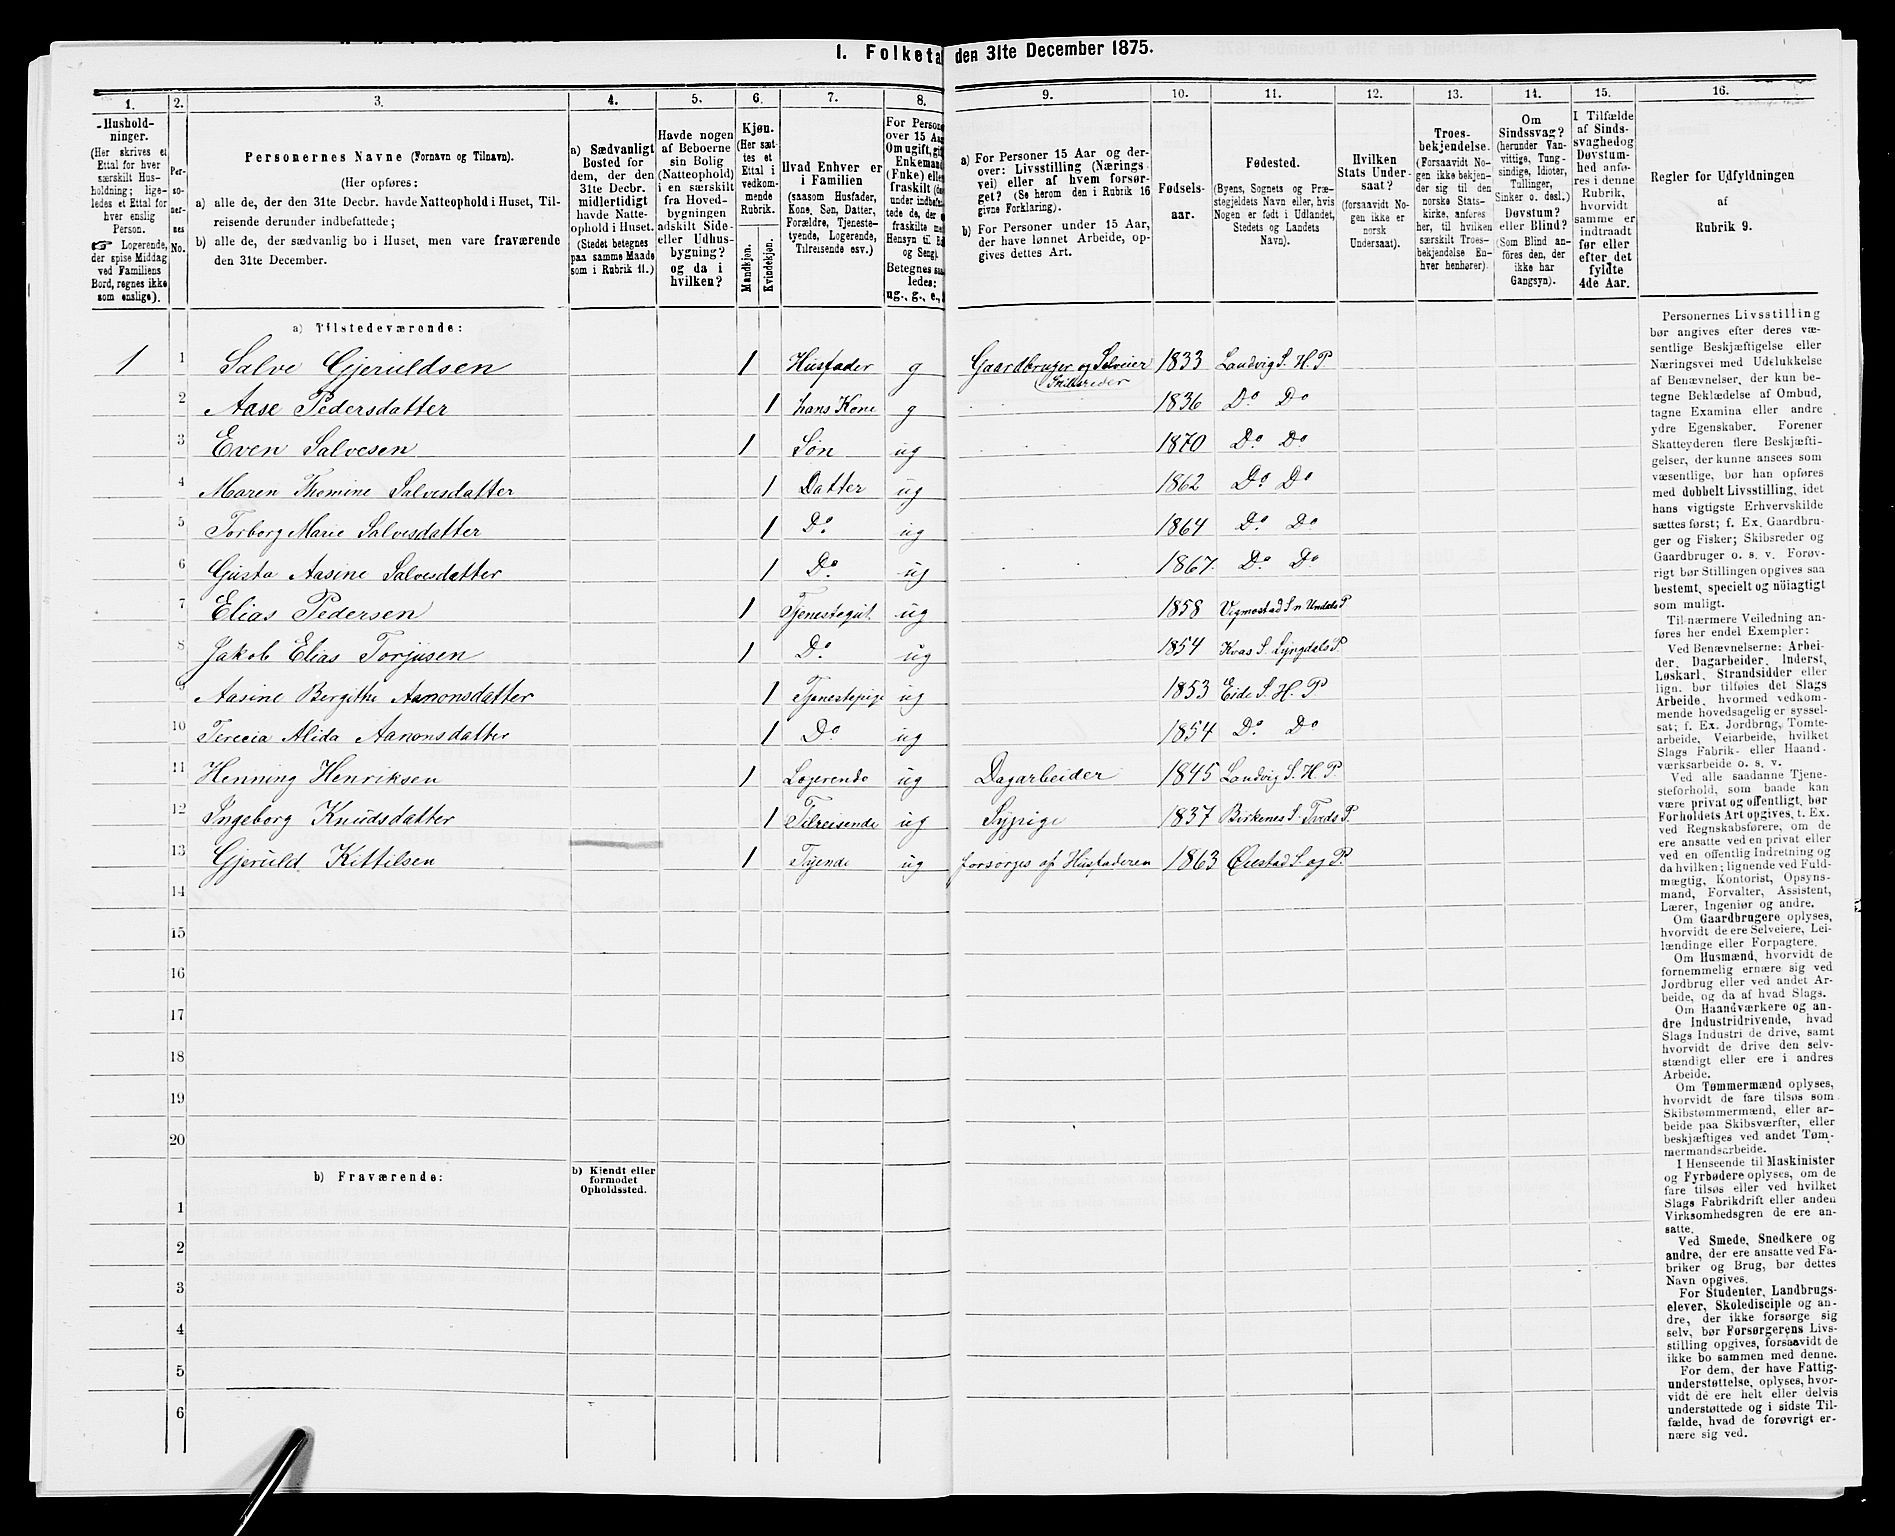 I. Folketal den 31te December 1875.
1.
2.
3.
4.
5.
6.
7.
8.
9.
10.
11.
12.
13.
14.
15.
16.
Hushold-
ninger.
(Her skrives et
Ettal for hver
særskilt Hus-
holdning; lige-
ledes et Ettal for
hver enslig
Person.
☞ Logerende,
der spise Middag
ved Familiens
Bord, regnes ikke
som enslige).
Per-
so-
ner-
nes
No.
Personernes Navne (Fornavn og Tilnavn).
(Her opføres:
a) alle de, der den 31te Decbr. havde Natteophold i Huset, Til-
reisende derunder indbefattede;
b) alle de, der sædvanlig bo i Huset, men vare fraværende
den 31te December.
a) Sædvanligt
Bosted for
dem, der den
31te Decbr.
midlertidigt
havde Natte-
ophold i Huset.
(Stedet betegnes
paa samme Maade
som i Rubrik 11.)
Havde nogen
af Beboerne
sin Bolig
(Natteophold)
i en særskilt
fra Hoved-
bygningen
adskilt Side-
eller Udhus-
bygning?
og da i
hvilken?
Kjøn.
(Her sæt-
tes et
Ettal i
vedkom-
mende
Rubrik.
Mandkjøn.
Kvindekjøn.
Hvad Enhver er
i Familien
(saasom Husfader,
Kone, Søn, Datter,
Forældre, Tjeneste-
tyende, Logerende,
Tilreisende osv.)
For Persone
over 15 Aa
Om ugift, gif
Enkemand
(Enke) elle
fraskilt (de
under indbefat-
tede de, der e
fraskilte me
Hensyn til B
og Seng).
Betegnes saa
ledes:
ug., g., e.,
a) For Personer 15 Aar og der-
over: Livsstilling (Nærings-
vei) eller af hvem forsør-
get? (Se herom den i Rubrik 16
givne Forklaring).
b) For Personer under 15 Aar,
der have lønnet Arbeide, op-
gives dettes Art.
Fødsels-
aar.
Fødested.
(Byens, Sognets og Præ-
stegjeldets Navn eller, hvis
Nogen er født i Udlandet,
Stedets og Landets
Navn).
Hvilken
Stats Under-
saat?
(forsaavidt No-
gen ikke er
norsk
Undersaat).
Troes-
bekjendelse.
(Forsaavidt No-
gen ikke bekjen-
der sig til den
norske Stats-
kirke, anføres
her, til hvilken
særskilt Troes-
bekjendelse En-
hver henhører).
Om
Sindssvag?
(herunder Van-
vittige, Tung-
sindige, Idioter,
Tullinger,
Sinker o. desl.)
Døvstum?
eller Blind?
(Som Blind an-
føres den, der
ikke har
Gangsyn).
I Tilfælde
af Sinds-
svaghed og
Døvstum-
hed anfø-
res i denne
Rubrik,
hvorvidt
samme er
indtraadt
før eller
efter det
fyldte
4de Aar.
Regler for Udfyldningen
af
Rubrik 9.
a) Tilstedeværende:
1 1 Salve Gjeruldsen 1 Husfader g Gaardbruger og Selveier 1833 Landvig S. H. P
Skibsreder
2 Aase Pedersdatter 1 hans Kone g 1836 Do Do
3 Even Salvesen 1 Søn ug 1870 Do Do
4 Maren Thomine Salvesdatter 1 Datter ug 1862 Do Do
5 Torborg Marie Salvesdatter 1 Do ug 1864 Do Do
6 Gusta Aasine Salvesdatter 1 Do ug 1867 Do Do
7 Elias Pedersen 1 Tjenestegut ug 1858 Vigmostad S n Undals P
8 Jakob Elias Torjusen 1 Do ug 1854 Kvas S. Lyngdals P.
9 Aasine Bergithe Aanonsdatter 1 Tjenestepige ug 1853 Eide S. H. P
10 Terecia Alida Aanonsdatter 1 Do ug 1854 Do Do
11 Henning Henriksen 1 Logerende ug Dagarbeider 1845 Landvig S. H. P.
12 Ingeborg Knudsdatter 1 Tilreisende ug Sypige 1837 Birkenes S. Tveds P.
13 Gjeruld Kittilsen 1 Tyende ug forsørges af Husfaderen 1863 Øiestad S. og P.
14
15
16
17
18
19
20
b) Fraværende:
b) Kjendt eller
formodet
Opholdssted.
1
2
3
4
5
6
Personernes Livsstilling
bør angives efter deres væ-
sentlige Beskjæftigelse eller
Næringsvei med Udelukkelse
af Benævnelser, der kun be-
tegne Beklædelse af Ombud,
tagne Examina eller andre
ydre Egenskaber. Forener
Skatteyderen flere Beskjæfti-
gelser, der kunne ansees som
væsentlige, bør han opføres
med dobbelt Livsstilling, idet
hans vigtigste Erhvervskilde
sættes først; f. Ex. Gaardbru-
ger og Fisker; Skibsreder og
Gaardbruger o. s. v. Forøv-
rigt bør Stillingen opgives saa
bestemt, specielt og nöiagtigt
som muligt.
Til nærmere Veiledning an-
føres her endel Exempler:
Ved Benævnelserne: Arbei-
der, Dagarbeider, Inderst,
Løskarl, Strandsidder eller
lign. bør tilføies det Slags
Arbeide, hvormed vedkom-
mende hovedsagelig er syssel-
sat; f. Ex. Jordbrug, Tomte-
arbeide, Veiarbeide, hvilket
Slags Fabrik- eller Haand-
værksarbeide o. s. v.
Ved alle saadanne Tjene-
steforhold, som baade kan
være privat og offentligt, bør
Forholdets Art opgives, t. Ex.
ved Regnskabsførere, om de
ere ansatte ved en privat eller
ved en offentlig Indretning og
da hvilken; lignende ved Fuld-
mægtig, Kontorist, Opsyns-
mand, Forvalter, Assistent,
Lærer, Ingeniør og andre.
Om Gaardbrugere oplyses,
hvorvidt de ere Selveiere, Lei-
lændinge eller Forpagtere.
Om Husmænd, hvorvidt de
fornemmelig ernære sig ved
Jordbrug eller ved andet Ar-
beide, og da af hvad Slags.
Om Haandværkere og an-
dre Industridrivende, hvad
Slags Industri de drive, samt
hvorvidt de drive den selv-
stændigt eller ere i andres
Arbeide.
Om Tømmermænd oplyses,
hvorvidt de fare tilsøs som
Skibstømmermænd, eller ar-
beide paa Skibsværfter, eller
beskjæftiges ved andet Tøm-
mermandsarbeide.
I Henseende til Maskinister
og Fyrbødere oplyses, om de
fare tilsøs eller ved hvilket
Slags Fabrikdrift eller anden
Virksomhedsgren de ere an-
satte.
Ved Smede, Snedkere og
andre, der ere ansatte ved Fa-
briker og Brug, bør dettes
Navn opgives.
For Studenter, Landbrugs-
elever, Skoledisciple og an-
dre, der ikke forsørge sig
selv, bør Forsørgerens Livs-
stilling opgives, forsaavidt de
ikke bo sammen med denne.
For dem, der have Fattig-
understøttelse, oplyses, hvor-
vidt de ere helt eller delvis
understøttede og i sidste Til-
fælde, hvad de forøvrigt er-
nære sig ved.